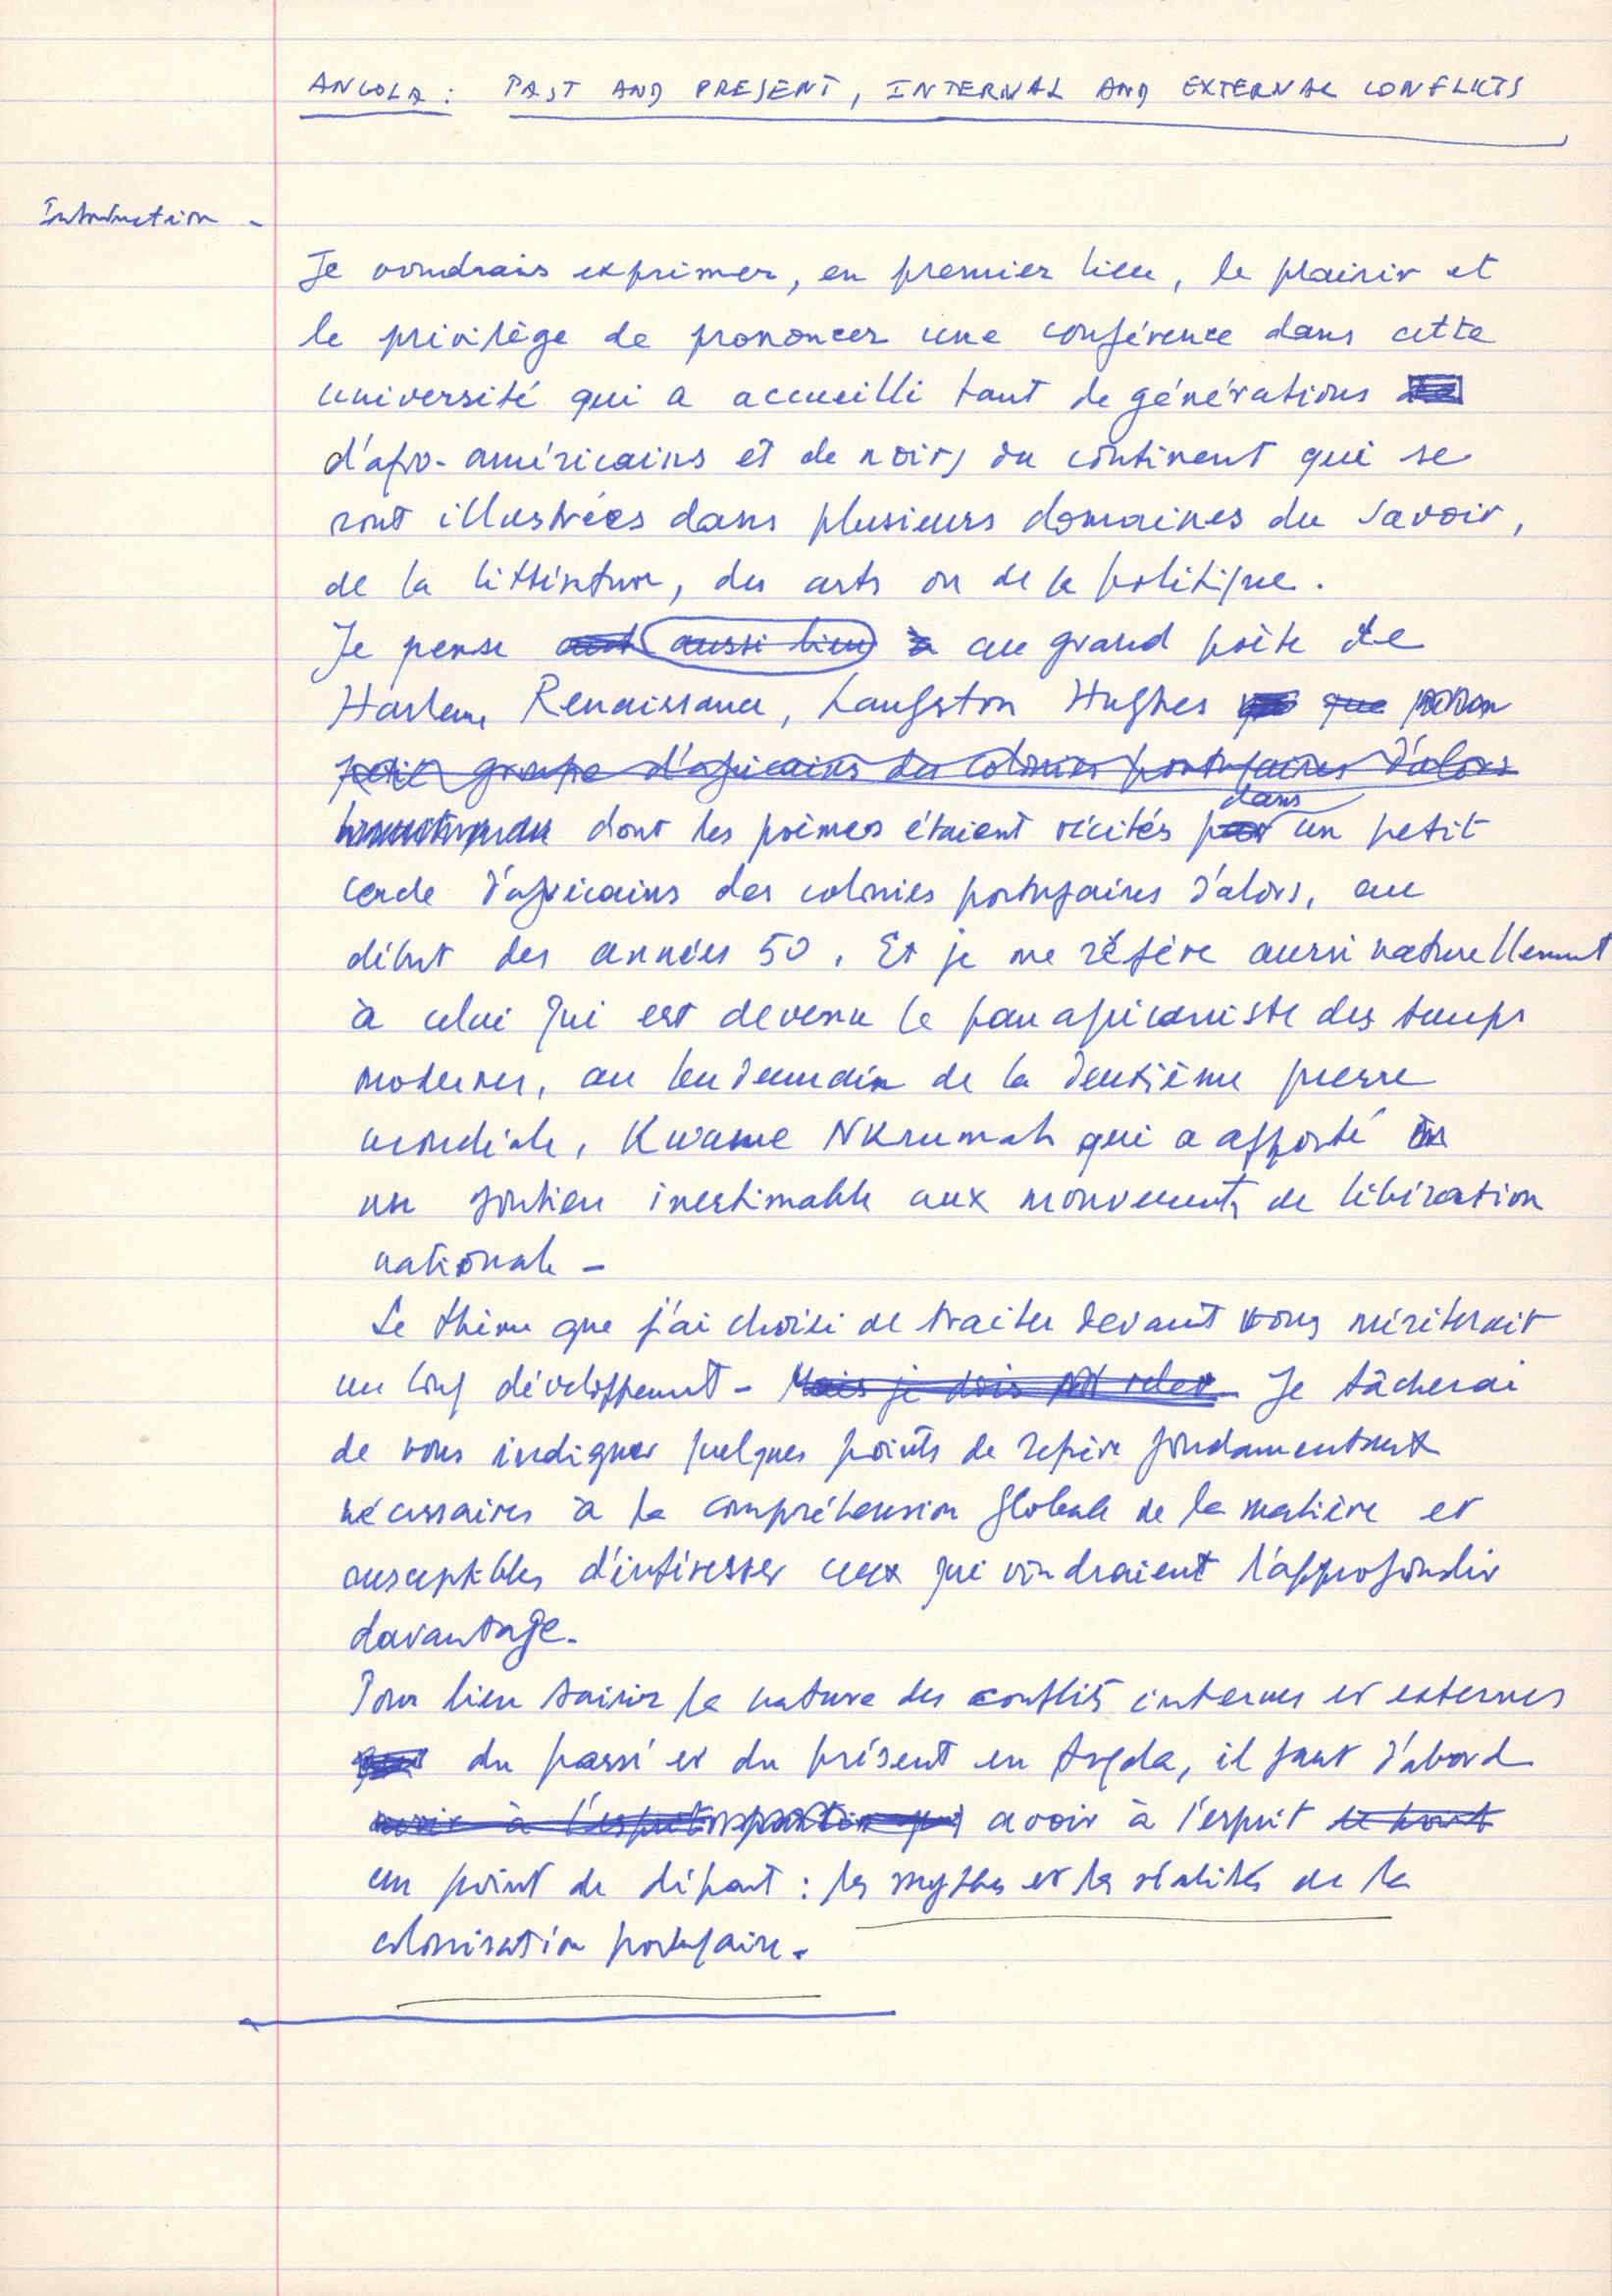 ANGOLA : PAST AND PRESENT, INTERNAL AND EXTERNAL CONFLICTS
Introduction -
Je voudrais exprimer, en premier lieu, le plaisir et
le privilège de prononcer une conférence dans cette
université qui a accueilli tant de générations
d'afro-américains et de noirs du continent qui se
sont illustrées dans plusieurs domaines du savoir,
de la littérature, des arts ou de la politique.
Je pense aussi bien au grand poète de
Harlem Renaissance, Langston Hughes que
petit groupe d'africains des colonies portugaises d'alors
dont les poèmes étaient récités par dans un petit
cercle d'africains des colonies portugaises d'alors, au
début des années 50. Et je me réfère aussi naturellement
à celui qui est devenu le panafricaniste des temps
modernes, au lendemain de la deuxième guerre
mondiale, Kwame NKrumah qui a apporté
un soutien inestimable aux mouvements de libération
nationale -
Le thème que j'ai choisi de traiter devant vous mériterait
un long développement - Mais je dois Je tâcherai
de vous indiquer quelques points de repère fondamentaux
nécessaires à la compréhension globale de la matière et
susceptibles d'intéresser ceux qui voudraient l'approfondir
davantage.
Pour bien saisir la nature des conflits internes et externes
du passé et du présent en Angola, il faut d'abord
avoir à l'esprit avoir à l'esprit le point
un point de départ : les mythes et les réalités de la
colonisation portugaise.